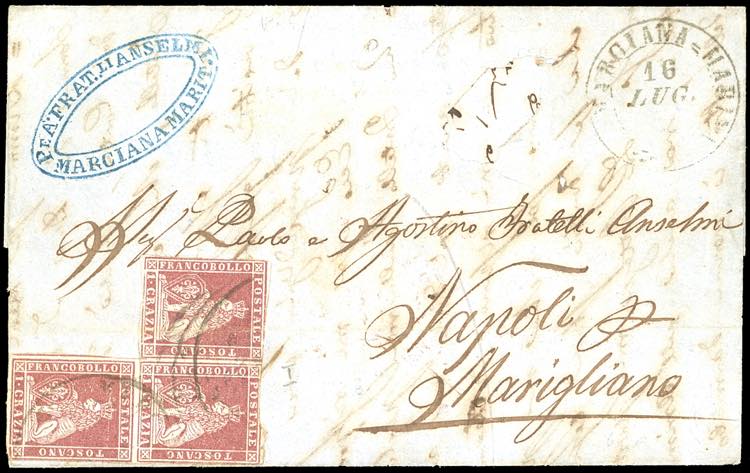 P. & A. FRAT.LLI ANSELMI
MARCIANA MARIT
MARCIANA = MARIN
16
LUG.
Paolo e Agostino Fratelli Anselmi
Napoli p
Marigliano
FRANCOBOLLO
POSTALE
TOSCANO
1·CRAZIA
FRANCOBOLLO
POSTALE
TOSCANO
1·CRAZIA
FRANCOBOLLO
POSTALE
TOSCANO
1·CRAZIA